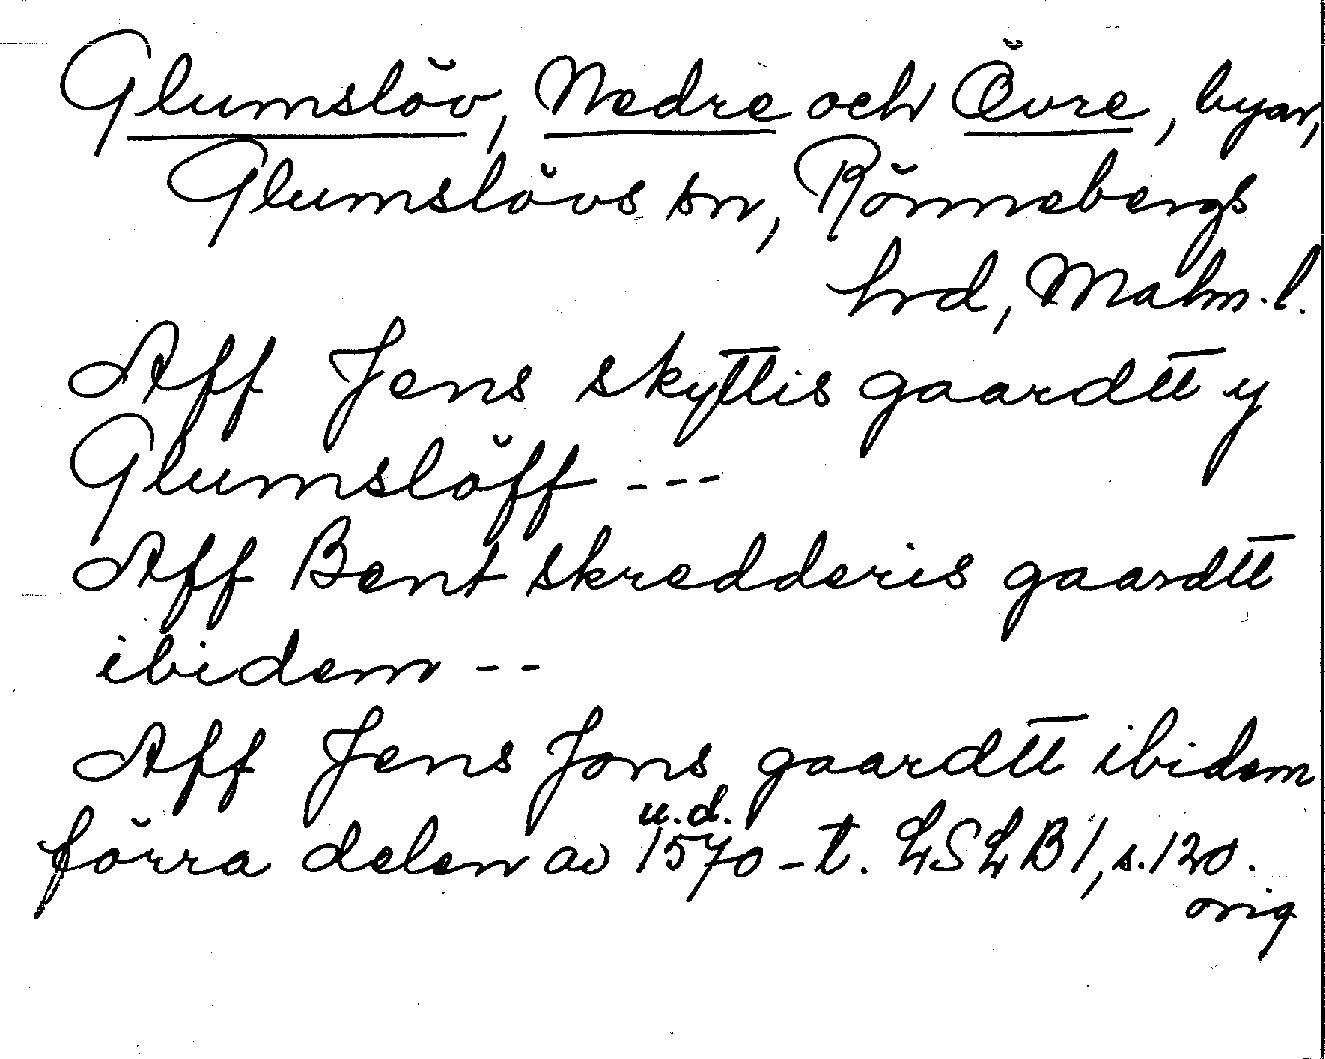 Glumslöv, Nedre och Övre, byar,
Glumslövs sn, Rönnebergs
hrd, Malm. l.
Aff Jens skyttis gaardtt y
Glumslöff ---
Aff Bent skredderis gaardtt
ibidem --
Aff Jens Jons gaardtt ibidem
u.d.
förra delen av 1570-t. LSLB 1, s. 120.
orig